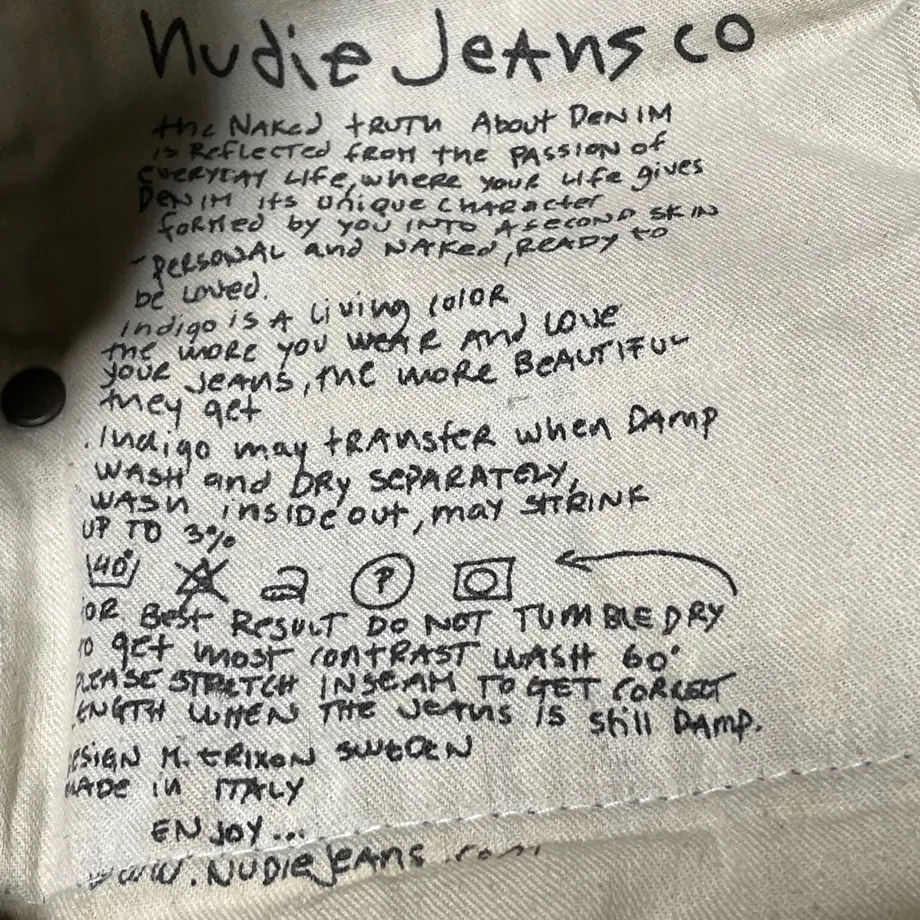 nudie Jeans co
the NAKed tRUTH About DENIM
is ReflecTed fROM the PASSION of
EVERYDAY LIFE, where your life gives
DENIM its unique CHARActer
formed by you INTO A SECOND SKIN
- PERSONAL and NAKed, READY to
be Loved.
indigo is A living color
the more you WEAR And love
your JEANS, the more BeAUTIFUL
they get
. Indigo may tRANsfeR when DAMP
WASH and DRy SEPARATELY,
WASH insideout, may SHRINK
UP TO 3%
40° P
FOR Best Result DO NOT TUMBLE DRY
TO get most CONTRAST WASH 60°
PLEASE STRETCH INSEAM TO GET CORRECT
LENGTH WHEN THE JEANS IS still DAMP.
DESIGN M. ERIXON SWEDEN
MADE in ITALY
ENJOY...
www.NUDIEJEANS.com